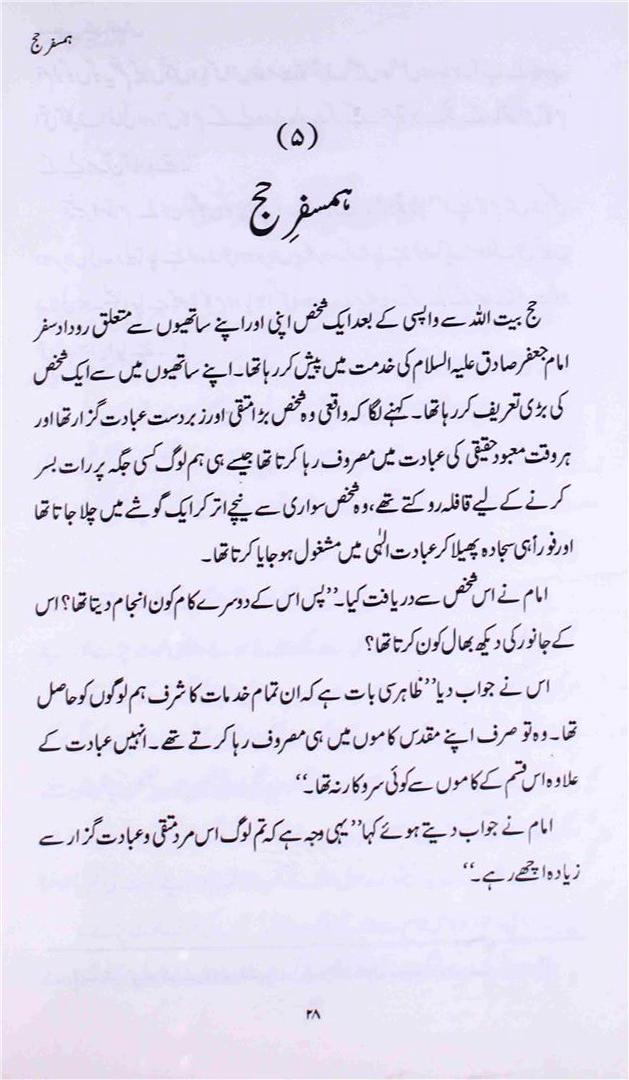 ہمسفر حج
(۵)
ہمسفرِ حج
حج بیت اللہ سے واپسی کے بعد ایک شخص اپنی اور اپنے ساتھیوں سے متعلق روداد سفر
امام جعفر صادق علیہ السلام کی خدمت میں پیش کر رہا تھا۔ اپنے ساتھیوں میں سے ایک شخص
کی بڑی تعریف کر رہا تھا۔ کہنے لگا کہ واقعی وہ شخص بڑا متقی اور زبردست عبادت گزار تھا اور
ہر وقت معبود حقیقی کی عبادت میں مصروف رہا کرتا تھا جیسے ہی ہم لوگ کسی جگہ پر رات بسر
کرنے کے لیے قافلہ روکتے تھے، وہ شخص سواری سے نیچے اتر کر ایک گوشے میں چلا جاتا تھا
اور فوراً ہی سجادہ پھیلا کر عبادت الہٰی میں مشغول ہو جایا کرتا تھا۔
امام نے اس شخص سے دریافت کیا۔ ’’پس اس کے دوسرے کام کون انجام دیتا تھا؟ اس
کے جانور کی دیکھ بھال کون کرتا تھا؟
اس نے جواب دیا ’’ظاہر سی بات ہے کہ ان تمام خدمات کا شرف ہم لوگوں کو حاصل
تھا۔ وہ تو صرف اپنے مقدس کاموں میں ہی مصروف رہا کرتے تھے۔ انہیں عبادت کے
علاوہ اس قسم کے کاموں سے کوئی سروکار نہ تھا۔‘‘
امام نے جواب دیتے ہوئے کہا ’’یہی وجہ ہے کہ تم لوگ اس مرد متقی و عبادت گزار سے
زیادہ اچھے رہے۔‘‘
۲۸